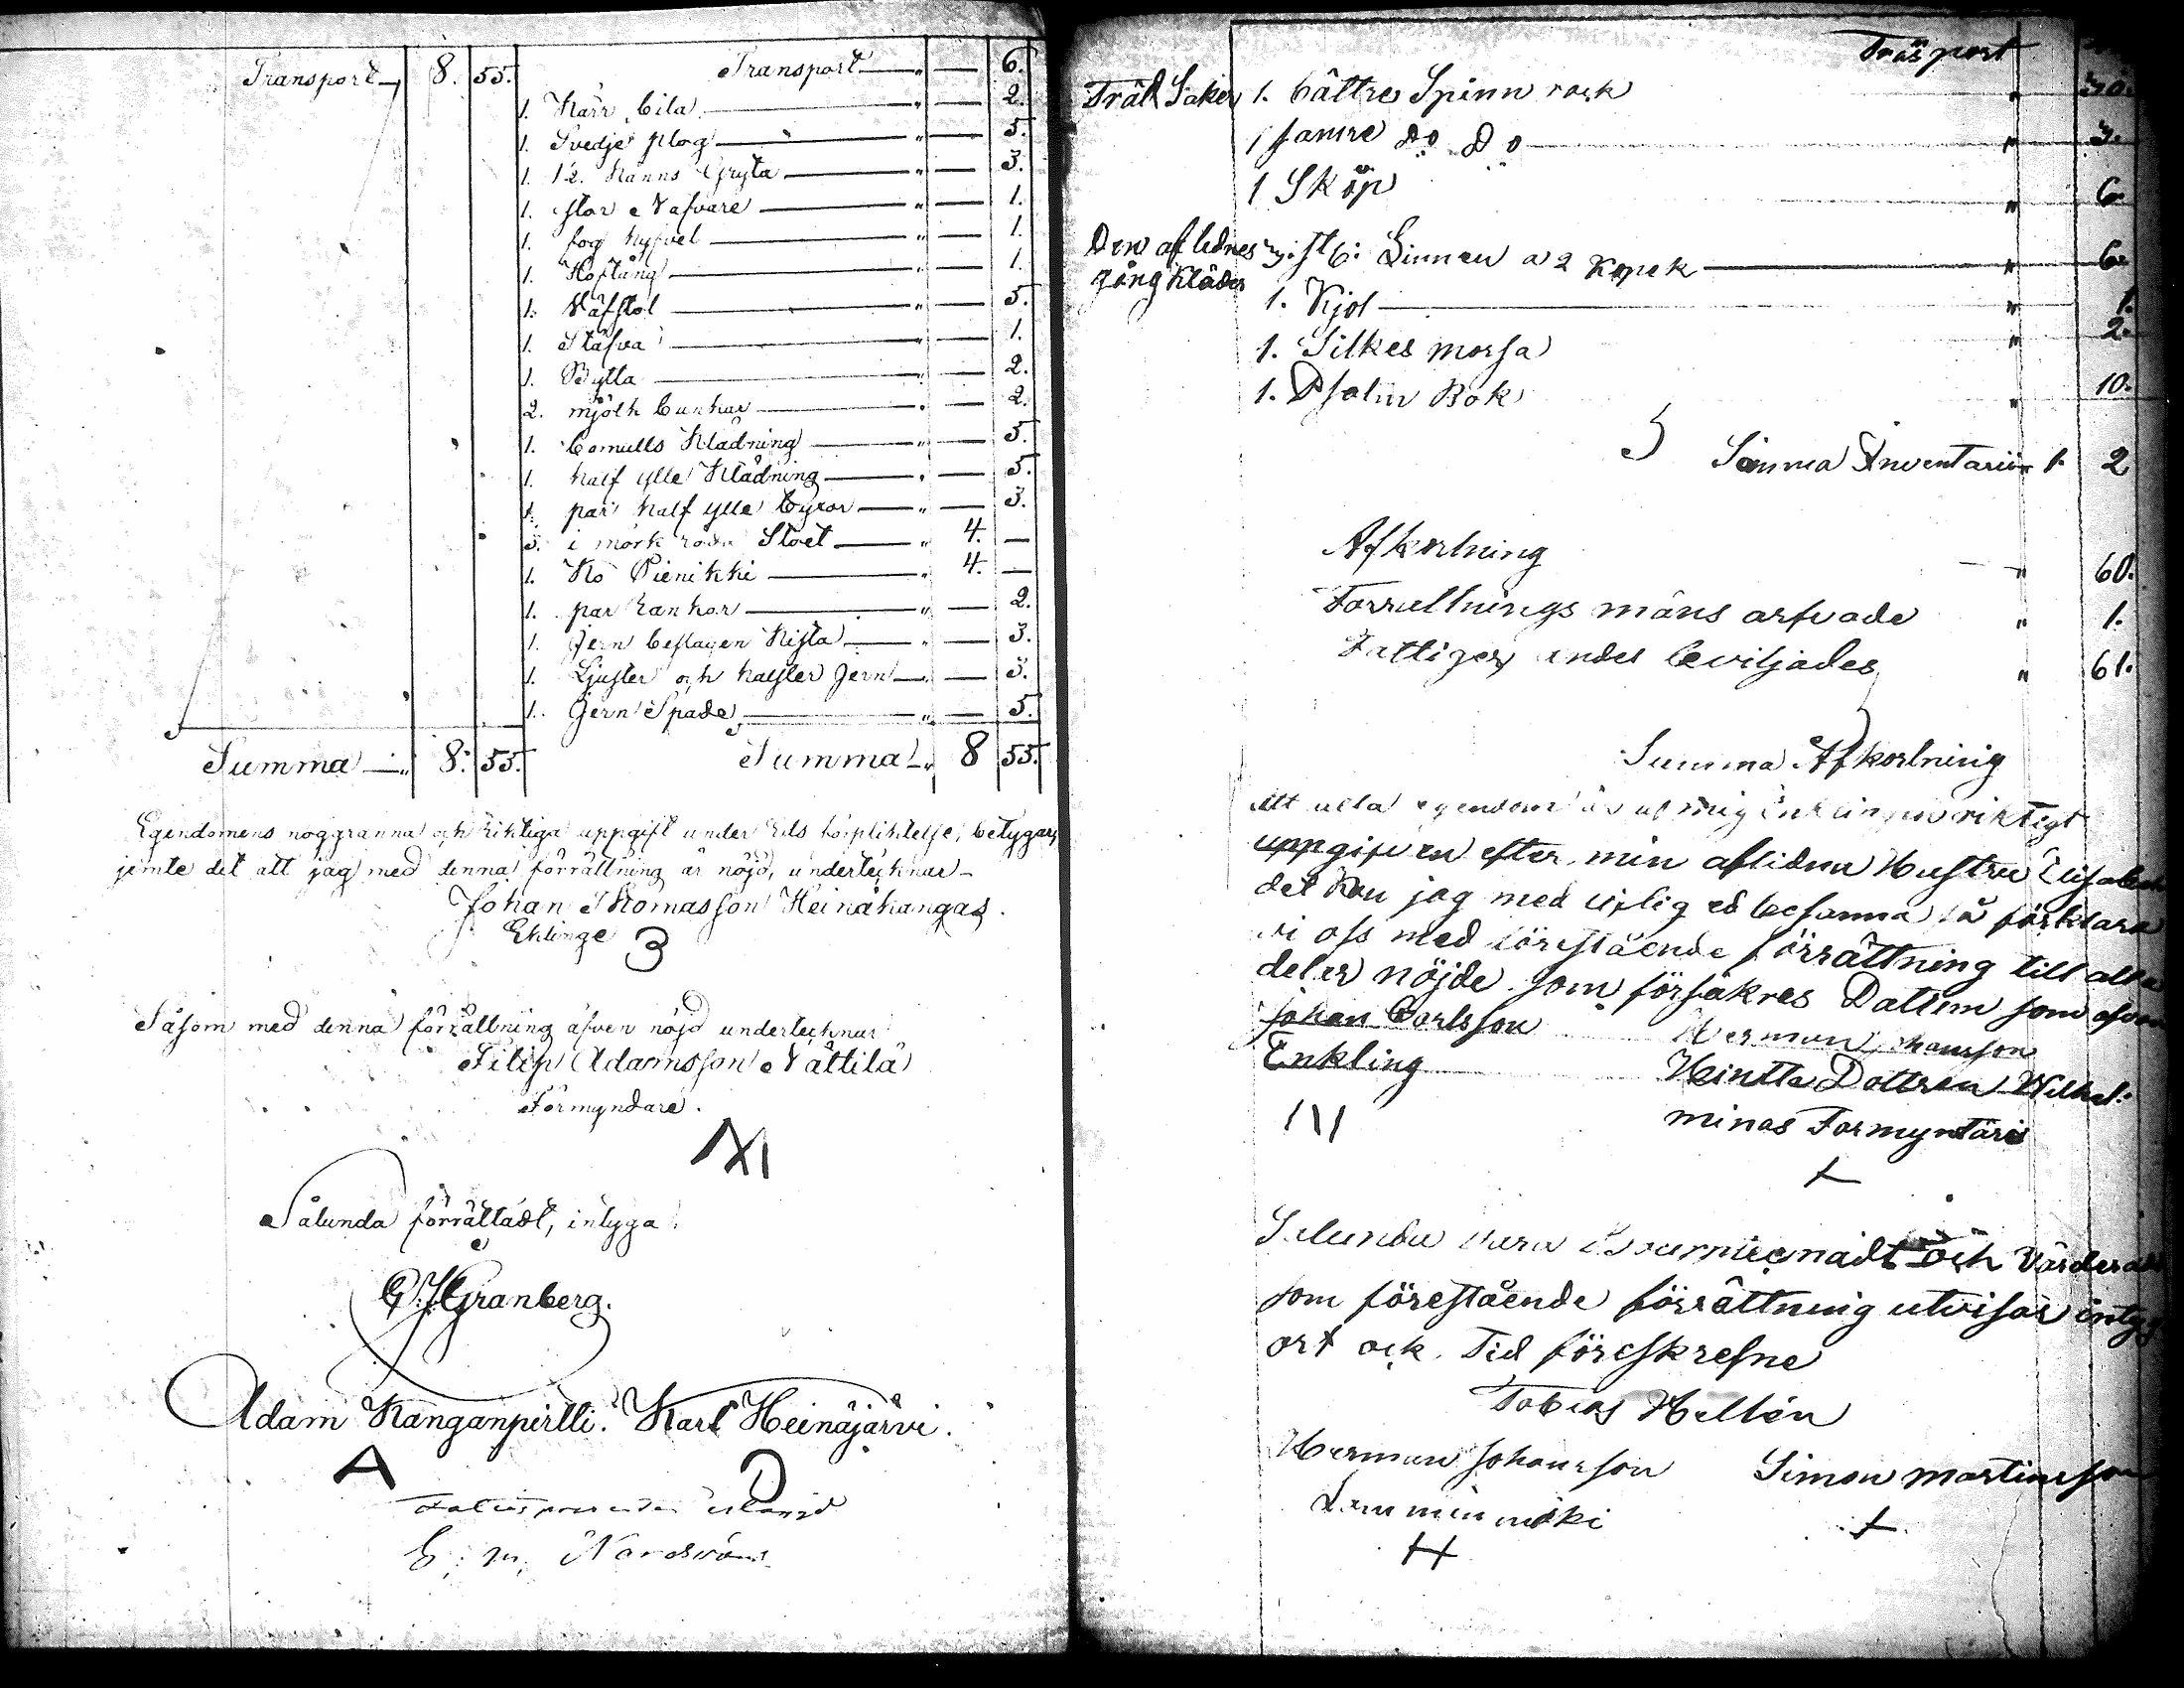 Transport 8. 55. Transport " — 6.
1. Kärr bila " — 2.
1. Svedje plog " — 5.
1. 12. Kanns Gryta " — 3.
1. stor Nafvare " — 1.
1. fog hyfvel " — 1.
1. Hoftång " — 1.
1. Väfstol " — 5.
1. Stäfva " — 1.
1. Bytta " — 2.
2. mjölk bunkar " — 2.
1. bomulls Klädning " — 5.
1. half ylle Klädning " — 5.
1. par half ylle byxor " — 3.
i mörk röda Stoet " 4. —
1. Ko Pienikki " 4. —
1. par Rankor " — 2.
1. Jern beslagen Kista " — 3.
1. Ljuster och halster Jern " — 3.
1. Jern Spade " — 5.
Summa 8. 55. Summa 8 55.
Egendomens noggranna och riktiga uppgift under Eds förpliktelse, betygas,
jemte det att jag med denna förrättning är nöjd, undertecknar
Johan Thomasson Heinäkangas.
Enklinge
Såsom med denna förrättning äfven nöjd undertecknar
Filip Adamsson Nättilä
Förmyndare.
Sålunda förrättadt, intyga
Granberg.
Adam Kanganpirtti. Karl Heinäjärvi.
A D
E. m. Nordström
Träsport
Träd Saker 1. bättre Spinn rock " 30.
1 samre do do " 3.
1 Skåp " 6.
Den aflednes 3. st: Linnen a 2 Kopek " 6.
gång Kläder 1. Kjol " 1.
1. Silkes morsa " 2.
1. Psalm Bok " 10.
Somma Inventarium 1. 2
Afkortning " 60.
Forrettnings mäns arfvode " 1.
Fattiges andel beviljades " 61.
Summa Afkortning
Att alla egendom är af mig Enklingen riktigt
uppgifven efter min aflidna Hustru Elisabeth
det kan jag med liflig ed besanna så förklara
vi oss med förestående förrättning till alla
deler nöjde som försäkres Datum som ofvan
Johan Carlsson Herman Johansson
Enkling Hintta Dottren Wilhel:
minas Formyntäre
Sålunda vara och Värderadt
som förestående förrättning utvisar intyg
ort ock Tid föreskrefne
Tobias Hellén
Herman Johansson Simon Martinsson
Lamminmäki